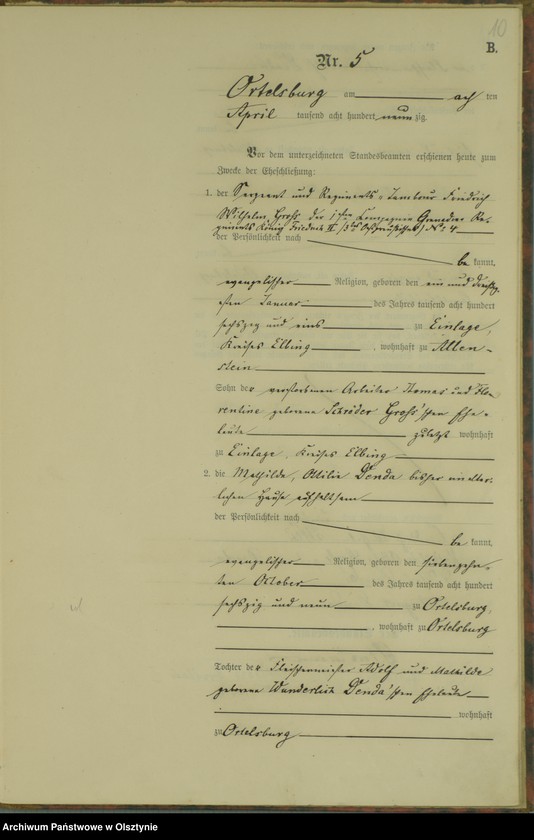 10
B.
Nr. 5
Ortelsburg am ach ten
April tausend acht hundert neun zig.
Vor dem unterzeichneten Standesbeamten erschienen heute zum
Zwecke der Eheschließung:
1. der Sergeant und Regiments-Tambour Friedrich
Wilhelm Groß der 1ten Compagnie Grenadier Re-
giments König Friedrich II (3tes Ostpreußisches) No 4
der Persönlichkeit nach
be kannt,
evangelischer Religion, geboren den ein und dreißig-
sten Januar des Jahres tausend acht hundert
sechszig und eins zu Einlage,
Kreises Elbing, wohnhaft zu Allen-
stein
Sohn der verstorbenen Arbeiter Thomas und Flo-
rentine geborene Schröder Groß'schen Ehe-
leute zuletzt wohnhaft
zu Einlage, Kreises Elbing
2. die Mathilde, Ottilie Denda bisher im elter-
lichen Hause aufhaltsam
der Persönlichkeit nach
be kannt,
evangelischer Religion, geboren den siebenzehn-
ten October des Jahres tausend acht hundert
sechszig und neun zu Ortelsburg,
, wohnhaft zu Ortelsburg
Tochter der Fleischermeister Adolf und Mathilde
geborene Wunderlich Denda'schen Eheleute
wohnhaft
zu Ortelsburg
Archiwum Państwowe w Olsztynie